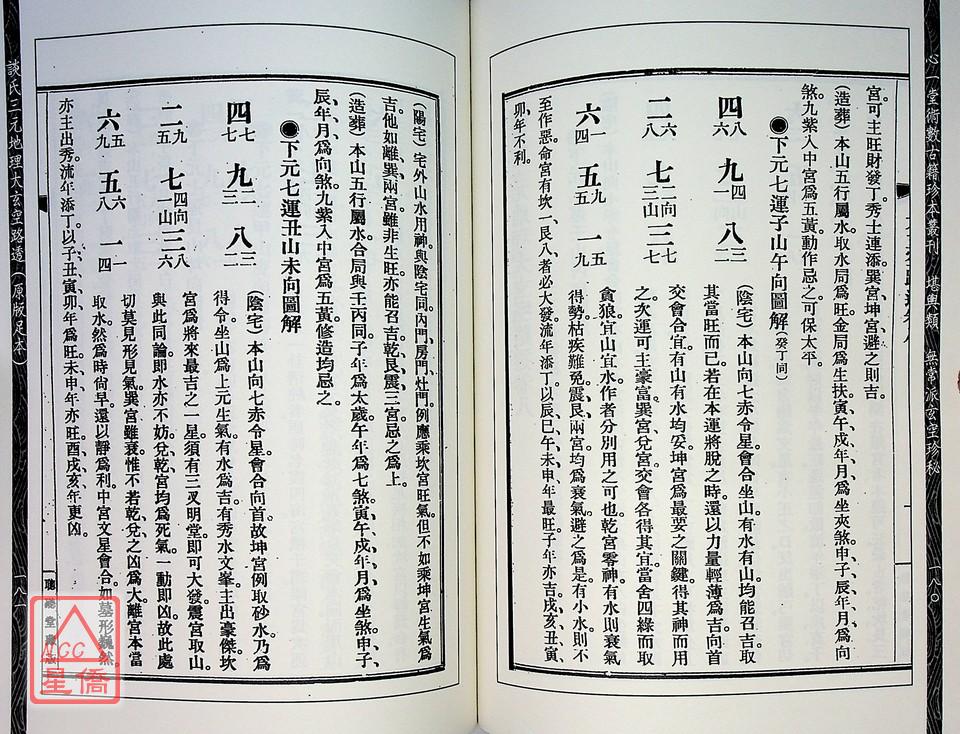 心一堂術數古籍珍本叢刊　堪輿類　無常派玄空珍秘
一八〇
宮可主旺財發丁秀士連添巽宮坤宮避之則吉。
（造葬）本山五行屬水取水局爲旺金局爲生扶寅午戌年月爲坐夾煞申子辰年月爲向
煞九紫入中宮爲五黃動作忌之可保太平。
●下元七運子山午向圖解（癸丁同）
四八六　九四一　八三二
二六八　七二向三山　三七七
六一四　五九五　一五九
（陰宅）本山向七赤令星會合坐山有水有山均能召吉取
其當旺而已若在本運將脫之時還以力量輕薄爲吉向首
交會合宜有山有水均妥坤宮爲最要之關鍵得其神而用
之次運可主豪富巽宮兌宮交會各得其宜當舍四綠而取
貪狼宜山宜水作者分別用之可也乾宮零神有水則衰氣
得勢枯疾難免震艮兩宮均爲衰氣避之爲是有小水則不
至作惡命宮有坎一艮八者必大發流年添丁以辰巳午未申年最旺子年亦吉戌亥丑寅、
卯年不利。
（陽宅）宅外山水用神與陰宅同內門房門灶門例應乘坎宮旺氣但不如乘坤宮生氣爲
吉他如離巽兩宮雖非生旺亦能召吉乾艮震三宮忌之爲上
（造葬）本山五行屬水合局與壬丙同子年爲太歲午年爲七煞寅午戌年月爲坐煞申子、
辰年月爲向煞九紫入中宮爲五黃修造均忌之
●下元七運丑山未向圖解
四七七　九二三　八三二
二九五　七四向一山　三八六
六五九　五六八　一一四
（陰宅）本山向七赤令星會合向首故坤宮例取砂水乃爲
得令坐山爲上元生氣有水爲吉有秀水文峯主出豪傑坎
宮爲將來最吉之一星須有三叉明堂即可大發震宮取山
與此同論即水亦不妨兌乾宮均爲死氣一動即凶故此處
切莫見形見氣巽宮雖衰惟不若乾兌之凶爲大離宮本當
取水然爲時尙早還以靜爲利中宮文星會合如墓形巍然
亦主出秀流年添丁以子丑寅卯年爲旺未申年亦旺酉戌亥年更凶。
談氏三元地理大玄空路透（原版足本）
一八一
聽濤堂藏版
ACC
星僑